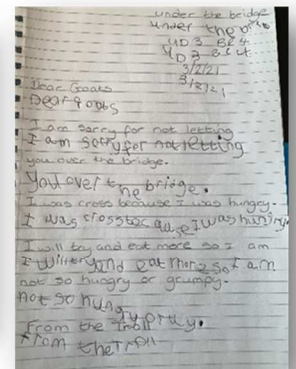 under the bridge
under the bridge
UD3 BL4
UD3 BL4
3/2/21
3/2/21
Dear Goats
Dear goots
I am sorry for not letting
I am sorry for not letting
you over the bridge.
you over the bridge.
I was cross because I was hungry.
I was cross because I was hungry.
I will try and eat more so I am
I will try and eat more so I am
not so hungry or grumpy.
not so hung
From the Troll
from the Troll